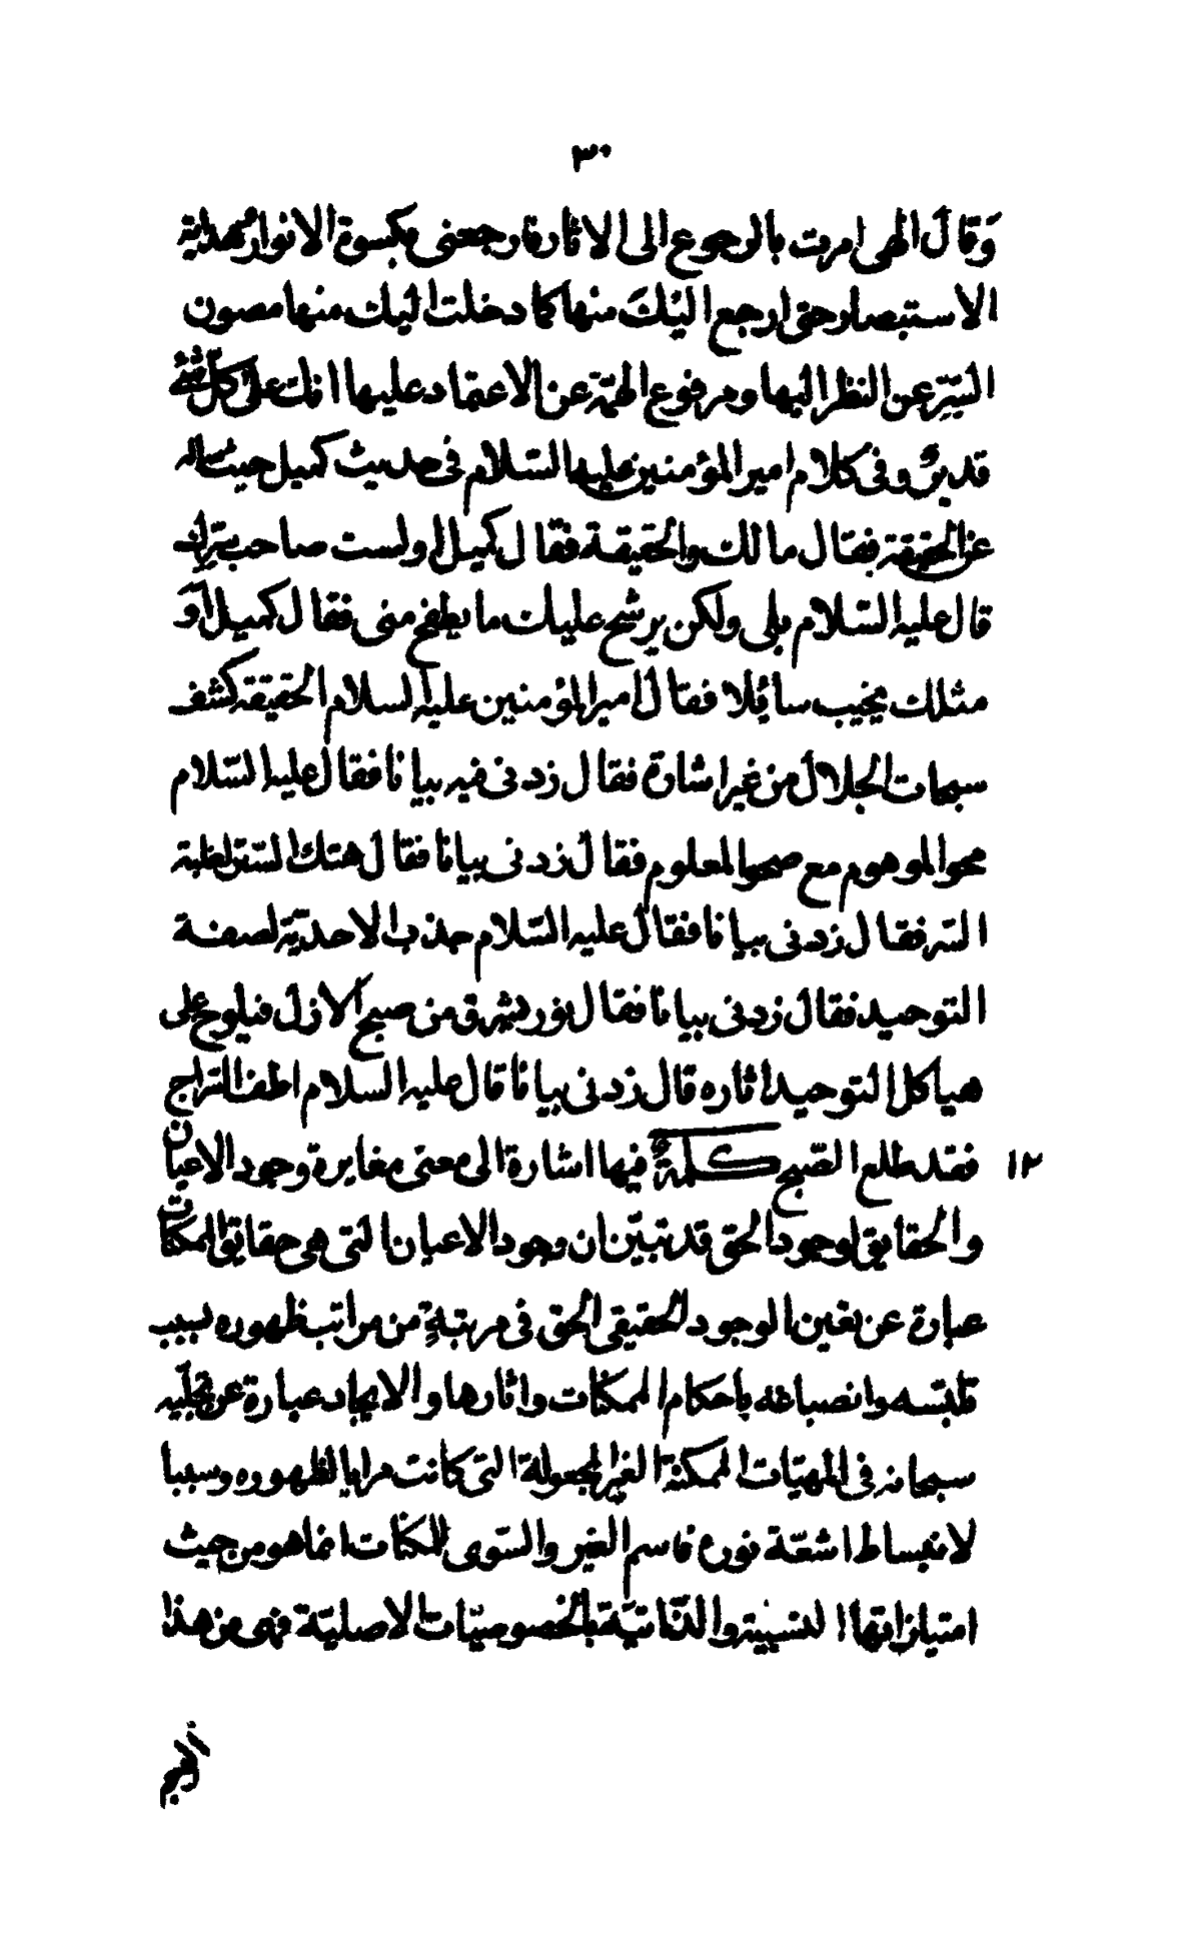 ٣٠
وَقالَ الهى امرت بالرجوع الى الاثار فارجعنى بكسوة الانوار وهداية
الاستبصار حتى ارجع اليْكَ منها كما دخلت اليك منها مصون
السّرِّ عن النظر اليها ومرفوع الهمّة عن الاعتماد عليها انك على كلّ شئ
قديرٌ وفى كلام امير المؤمنين عليه السّلام فى حديث كميل حيث ساله
عن الحقيقة فقال مالك والحقيقة فقال كميل اولست صاحب سرّك
قال عليه السّلام بلى ولكن يرشح عليك ما يطفح منى فقال كميل اوَ
مثلك يخيب سائلا فقال امير المؤمنين عليه السلام الحقيقة كشف
سبحات الجلال من غير اشارة فقال زدنى فيه بيانا فقال عليه السّلام
محو الموهوم مع صحو المعلوم فقال زدنى بيانا فقال هتك السّتر لغلبة
السّر فقال زدنى بيانا فقال عليه السّلام جذب الاحديّة لصفة
التوحيد فقال زدنى بيانا فقال نور يشرق من صبح الازل فيلوح على
هياكل التوحيد اثاره قال زدنى بيانا قال عليه السلام اطف السّراج
فقد طلع الصّبح كلمةٌ فيها اشارة الى معنى مغايرة وجود الاعيان ١٢
والحقايق لوجود الحق قد تبيّن ان وجود الاعيان التى هى حقايق الممكنات
عبارة عن تعين الوجود الحقيقى الحق فى مرتبةٍ من مراتب ظهوره بسبب
تلبّسه وانصباغه باحكام الممكنات واثارها والايجاد عبارة عن تجلّيه
سبحانه فى المهيّات الممكنة الغير المجعولة التى كانت مرايا لظهوره وسببا
لانبساط اشعّة نوره فاسم الغير والسّوى للممكنات انما هو من حيث
امتيازاتها النسبية والذّاتيّة بالخصوصيّات الاصليّة فهى من هذا